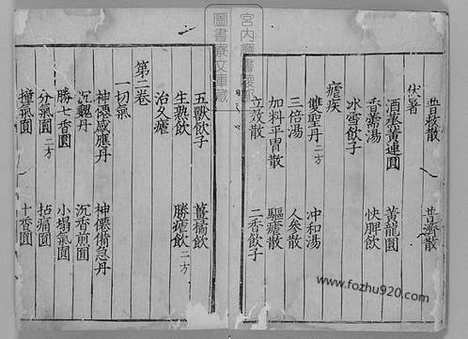 普救散 普濟散
伏暑
酒蒸黃連圓 黃龍圓
香薷湯 快脾飲
水雪飲子
瘧疾
雙聖丹二方 冲和湯
三倍湯 人參散
加料平胃散 驅瘧散
立效散 二香飲子
五獸飲子 薑橘飲
生熟飲 勝瘧飲二方
治久瘧
第二卷
一切氣
神僊感應丹 神僊備急丹
沉麝丹 沉香煎圓
勝七香圓 小塌氣圓
分氣圓二方 拈痛圓
撞氣圓 十香圓
宮內
圖書
文庫
www.fozhu920.com